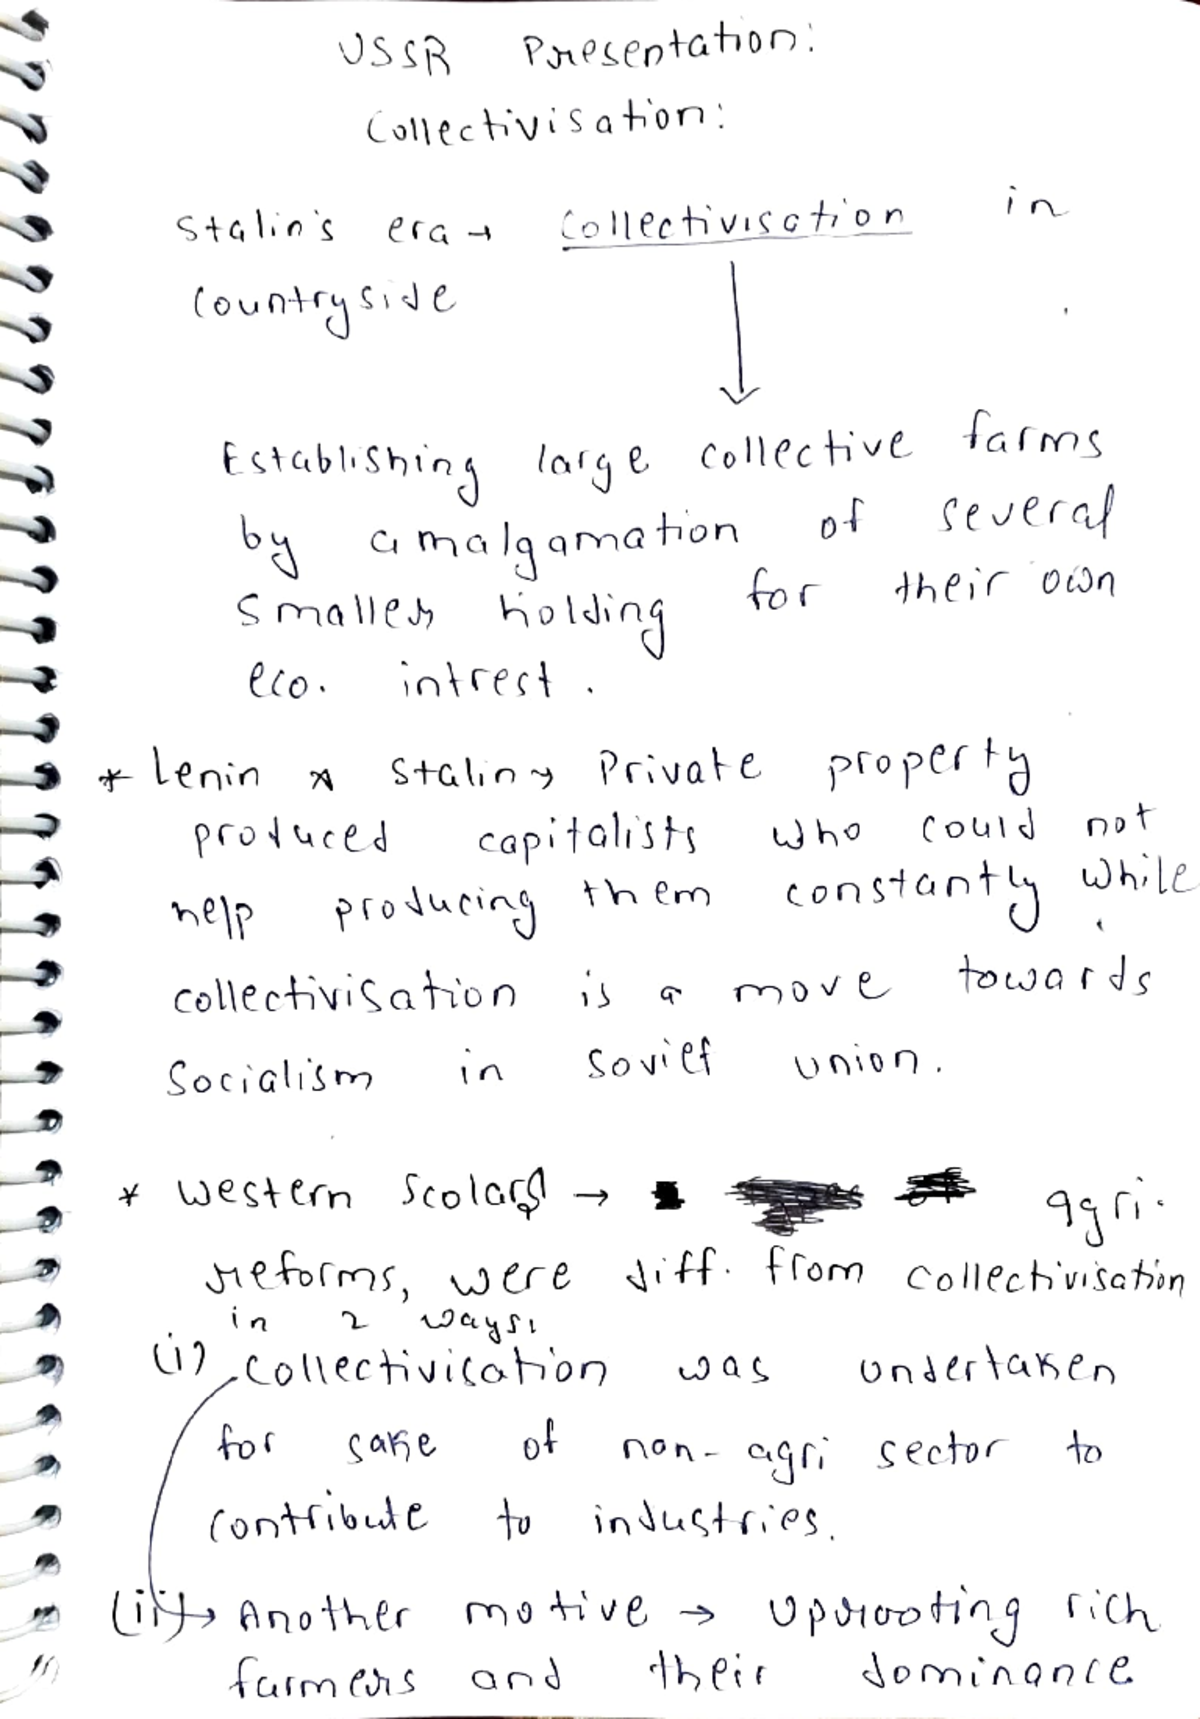 USSR Presentation:
Collectivisation:
Stalin's era → Collectivisation in
countryside
Establishing large collective farms
by amalgamation of several
smaller holding for their own
eco. intrest.
* Lenin & Stalin → Private property
produced capitalists who could not
help producing them constantly while
collectivisation is a move towards
Socialism in Soviet union.
* Western Scolars → agri.
reforms, were diff. from collectivisation
in 2 ways:
(i) Collectivisation was undertaken
for sake of non-agri sector to
contribute to industries.
(ii) → Another motive → uprooting rich
farmers and their dominance